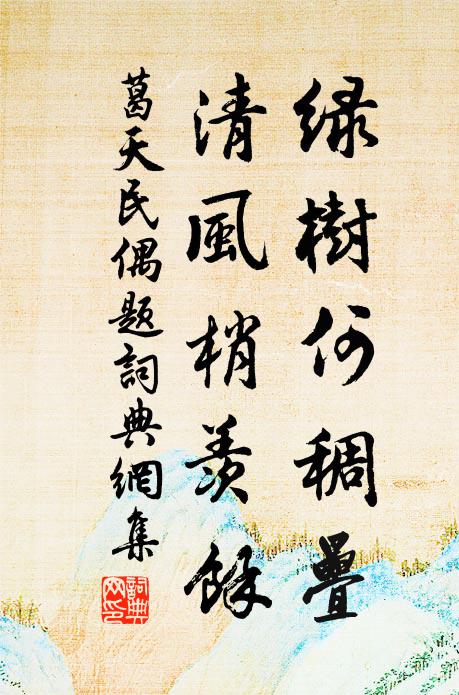 绿樹何稠疊
清風梢羨餘
葛天民偶题詞典網集
詞典网印